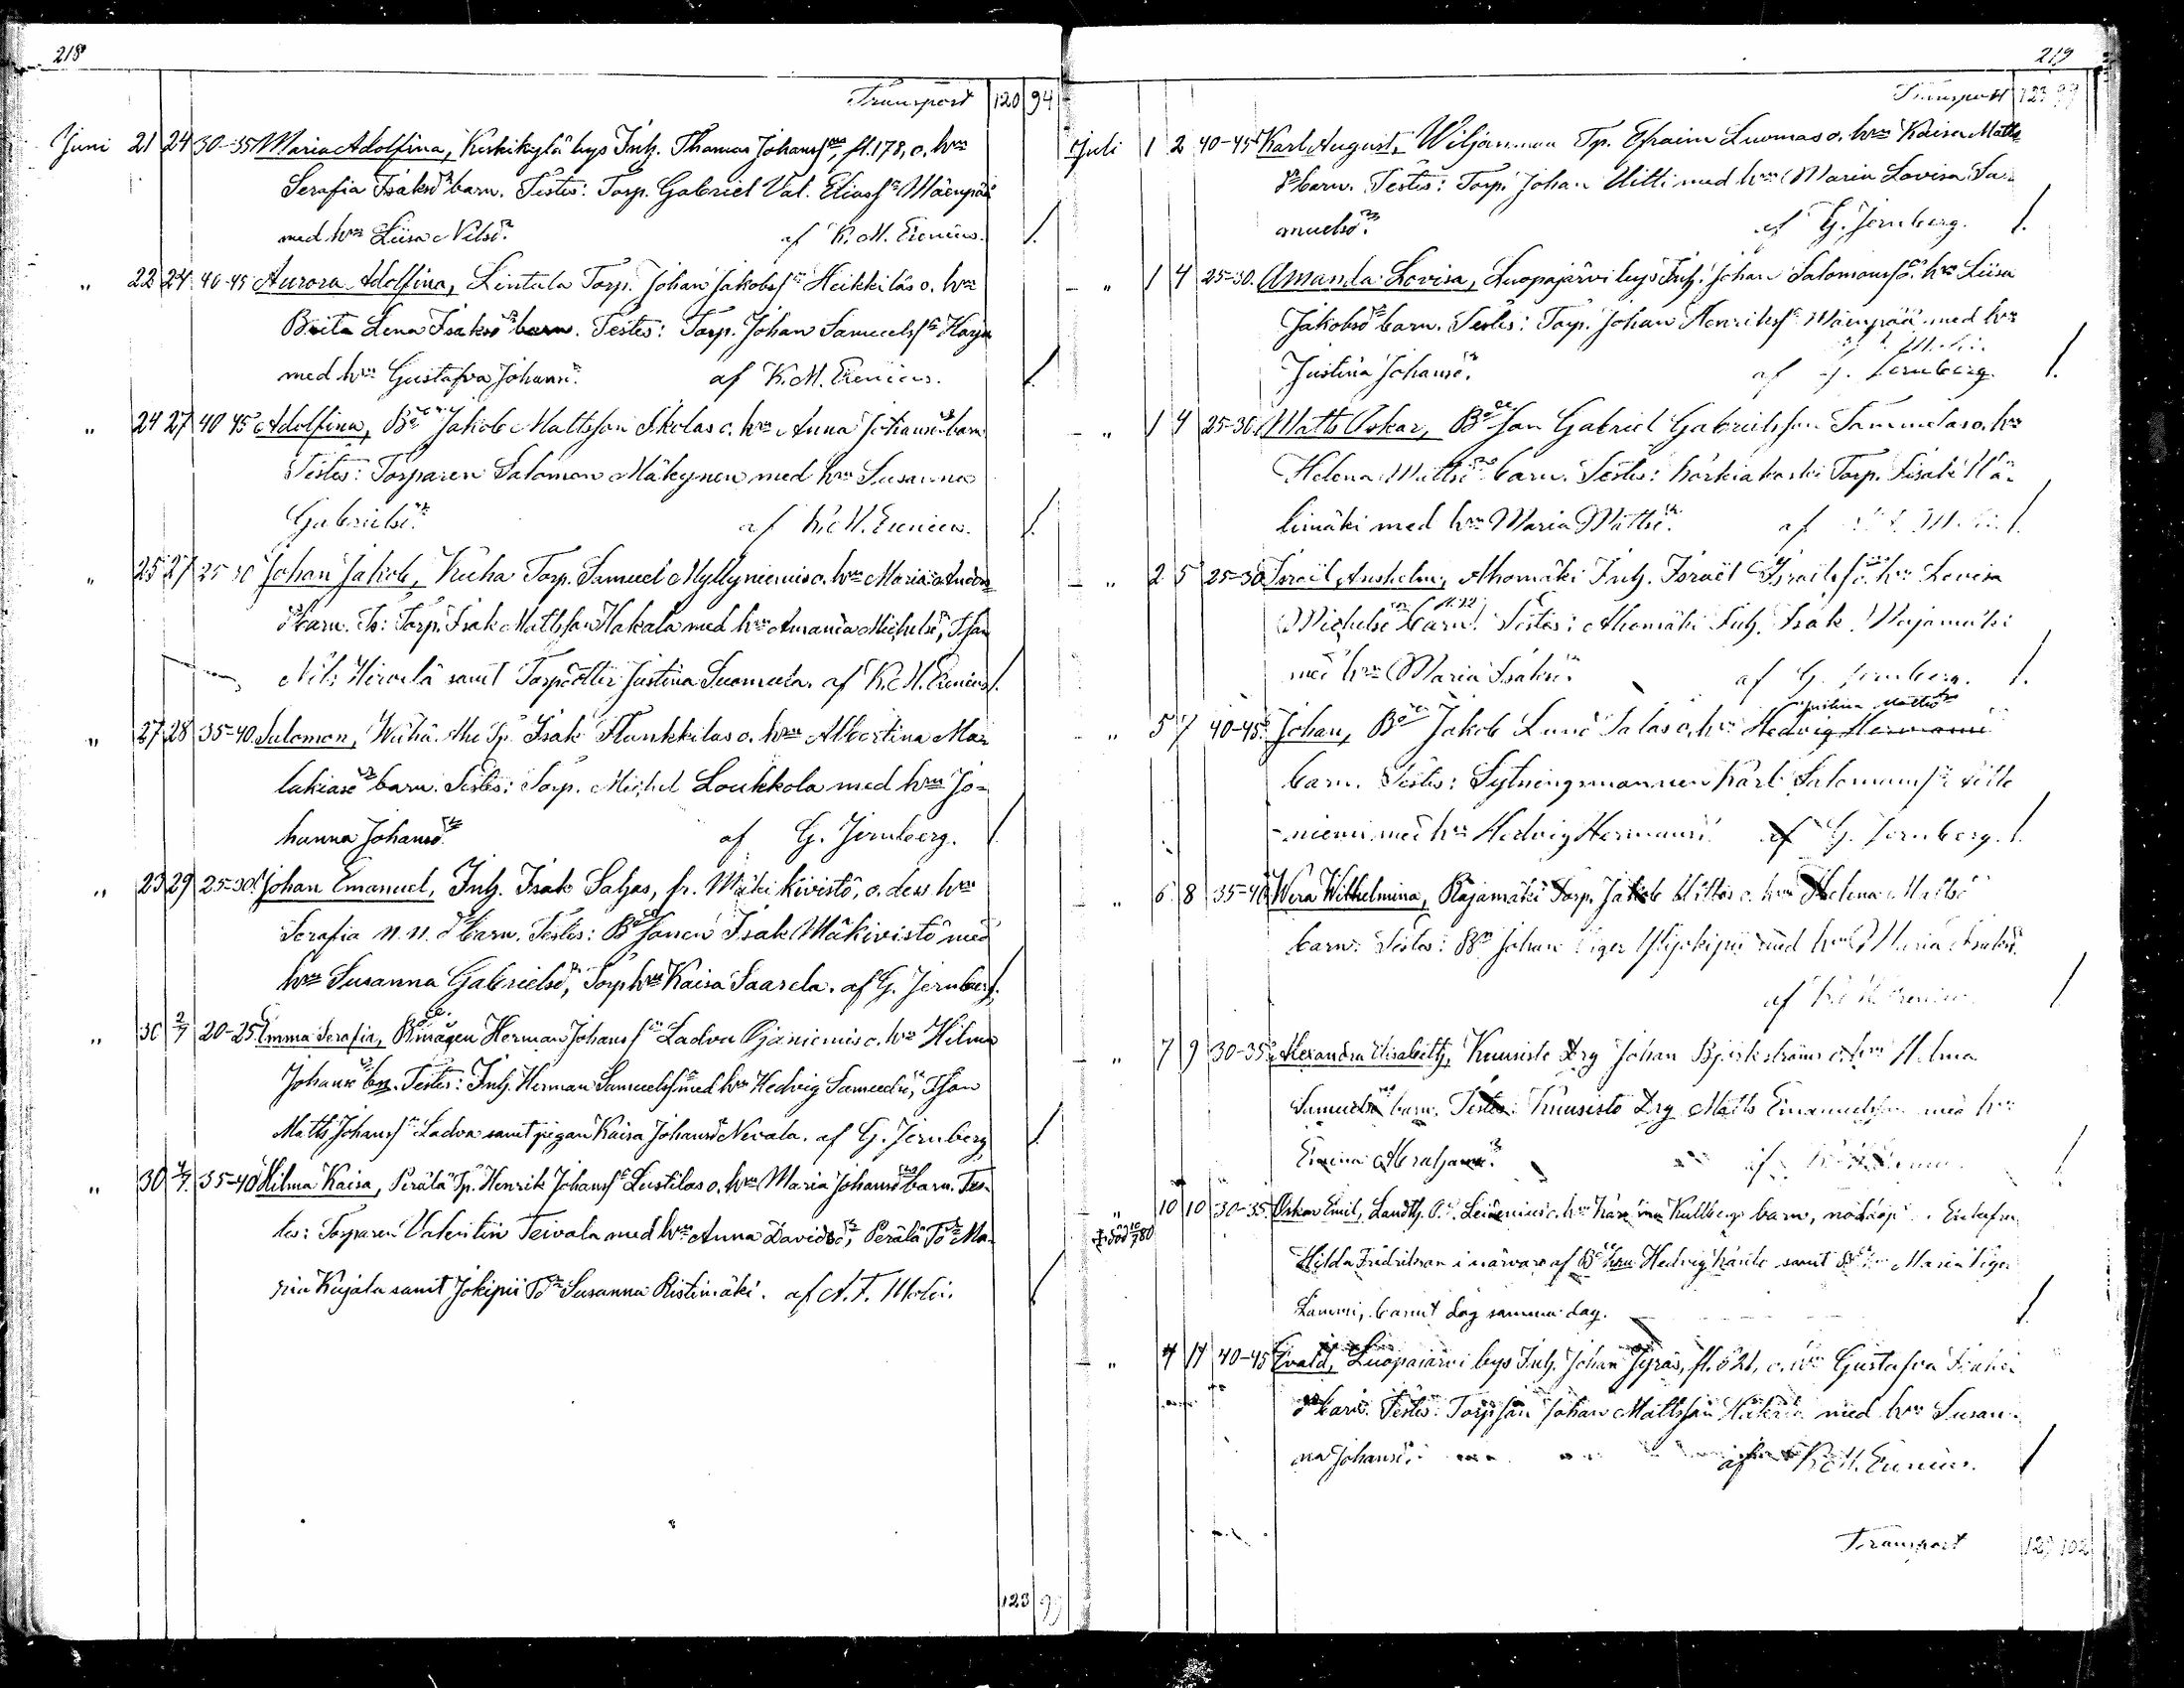 218
Transport 120 94
Juni 21 24 30-35 Maria Adolfina, Kirkikylä bys Inh. Thomas Johansson, fl. 178, o. hru
Serafia Isaksdr barn. Testes: Torp. Gabriel Val. Eliass. Mäenpää
med hru Liisa Nilsdr. af K. M. Erenius.
" 22 24 40-45 Aurora Adolfina, Lintala Torp. Johan Jakobss. Heikkiläs o. hru
Brita Lena Isaksdr barn. Testes: Torp. Johan Samuelss. Harju
med hru Gustafva Johansdr. af K. M. Erenius.
" 24 27 40-45 Adolfina, Bd Jakob Mattsson Skolas o. hru Anna Johansdr barn
Testes: Torparen Salomon Mäkynen med hru Susanna
Gabrielsdr. af K. M. Erenius.
" 25 27 25-30 Johan Jakob, Kuha Torp. Samuel Myllyniemis o. hru Maria Anders-
dr barn. Ts: Torp. Isak Mattsson Hakala med hru Amanda Michelsdr, Tson
Nils Hirvelä samt Torpedotter Justina Luomala. af K. M. Erenius.
" 27 28 35-40 Salomon, Wähä-Aho Tp. Isak Hankkilas o. hru Albertina Ma-
lakiasdr barn. Testes: Torp. Michel Loukkola med hru Jo-
hanna Johansdr af G. Jernberg.
" 23 29 25-30 Johan Emanuel, Inh. Isak Saljas, fr. Mäki kivistö, o. dess hru
Serafia N.N. dr barn. Testes: Bdesonen Isak Mäkivistö med
hru Susanna Gabrielsdr, Torp hru Kaisa Saarela. af G. Jernberg.
" 30 2/7 20-25 Emma Serafia, Bdmågen Herman Johanss. Ladva Ojaniemis o. hru Hilma
Johansdr bn. Testes: Inh. Herman Samuelss. med hru Hedvig Samuelsdr, Tson
Matts Johanss. Ladva samt pigan Kaisa Johansdr Nevala. af G. Jernberg
" 30 4/7 35-40 Hilma Kaisa, Perälä Tp. Henrik Johanss. Lustilas o. hru Maria Johansdr barn. Tes-
tes: Torparen Valentin Teivala med hru Anna Davidsdr, Perälä Tdr Ma-
ria Kujala samt Jokipii Tdr Susanna Ristimäki. af A. F. Molin.
123 99
219
Transport 123 99
Juli 1 2 40-45 Karl August, Wiljanmaa Tp. Efraim Luomas o. hru Kaisa Matts-
dr barn. Testes: Torp. Johan Uitti med hru Maria Lovisa Sa-
muelsdr. af G. Jernberg.
" 1 4 25-30 Amanda Lovisa, Luopajärvi bys Inh. Johan Salomonss. o. hru Liisa
Jakobsdr barn. Testes: Torp. Johan Henrikss. Mäenpää med hru
Justina Johansdr. af G. Jernberg.
" 1 4 25-30 Matts Oskar, Bdeson Gabriel Gabrielsson Tammelas o. hru
Helena Mattsdr barn. Testes: Torp. Iisaki
limäki med hru Maria Mattsdr. af
" 2 5 25-30 Israël Anshelm, Ahomäki Inh. Israël Israëlss. o. hru Lovisa
Michelsdr barn. Testes: Ahomäki Inh. Isak Majamäki
med hru Maria Isaksdr. af G. Jernberg.
Justina Mattsdr
" 5 7 40-45 Johan, Bde Jakob Salas o. hru Hedvig Hermansdr
barn. Testes: Sytningsmannen Karl Salomonss.
niemi med hru Hedvig Hermansdr. af G. Jernberg.
" 6 8 35-40 Wera Wilhelmina, Rajamäki Torp. Jakob o. hru Helena Mattsdr
barn. Testes: Bd Johan Ylijokipii med hru Maria Isaksdr.
af K. M. Erenius
" 7 9 30-35 Alexandra Elisabeth, Kuusisto Drg Johan Björkströms o. hru Hilma
Samuelsdr barn. Testes: Kuusisto Drg Matts Emanuelsson med hru
Emma Abrahamsdr. af K. M. Erenius
" 10 10 30-35 Oskar Emil, Landth. Leidenius o. hru Kullbergs barn, nöddöpt
Hilda Fredrikson i närvaro af Bde hru Hedvig samt Maria
Lammi, barnet dog samma dag.
" 4 11 40-45 Evald, Luopajärvi bys Inh. Johan Jyräs, fl. 521, o. hru Gustafva Isaks-
dr barn. Testes: Torpson Johan Mattsson med hru Susan-
na Johansdr. af K. M. Erenius.
Transport 127 102